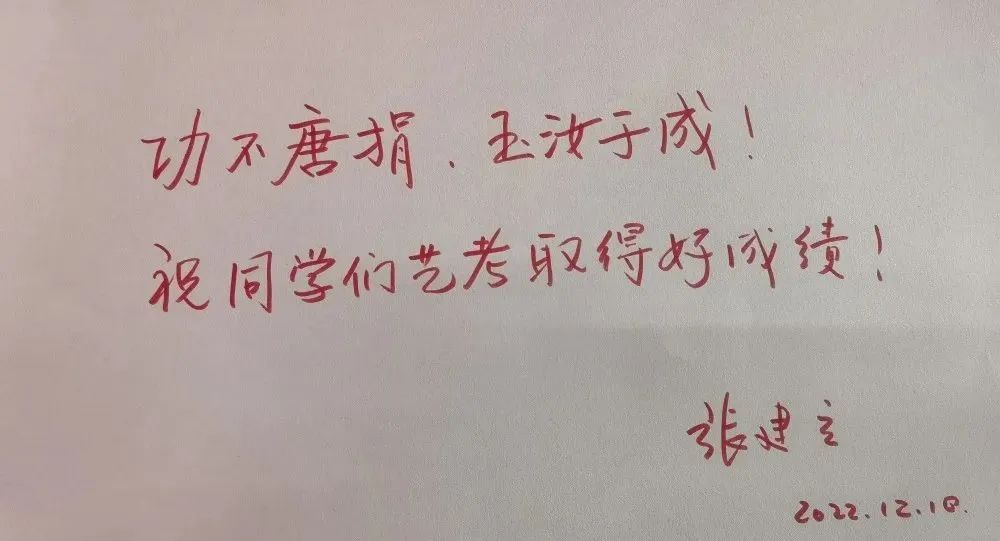 功不唐捐、玉汝于成！
祝同学们艺考取得好成绩！
张建立
2022.12.18.